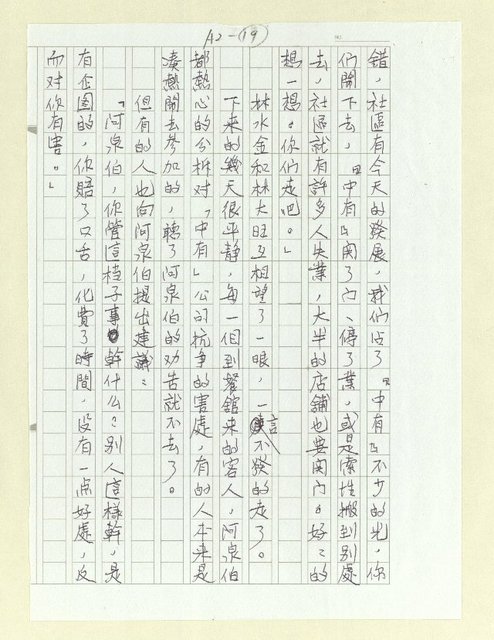 A2-(19)
錯，社區有今天的發展，我們沾了『中有』不少的光，你
們鬧下去，『中有』関了门、停了業，或是索性搬到別處
去，社區就有許多人失業，大半的店舖也要関门。好〻的
想一想。你們走吧。」
林水金和林大旺互相望了一眼，一言不發的走了。
下來的幾天很平静，每一個到餐舘來的客人，阿泉伯
都熱心的分析对「中有」公司抗爭的害處，有的人本來是
凑熱鬧去参加的，聽了阿泉伯的劝告就不去了。
但有的人也向阿泉伯提出建議：
「阿泉伯，你管這档子事幹什么？別人這樣幹，是
有企图的，你賠了口舌，化費了時間，没有一点好處，反
而对你有害。」